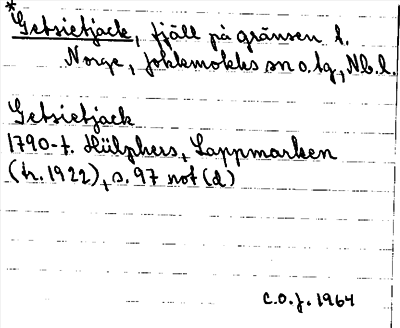 *Getsietjäck, fjäll på gränsen t.
Norge, Jokkmokks sn o. lg, Nb. l.
Getsietjack
1790-t. Hülphers, Lappmarken
(tr. 1922), s. 97 not (d)
C.O.J. 1964